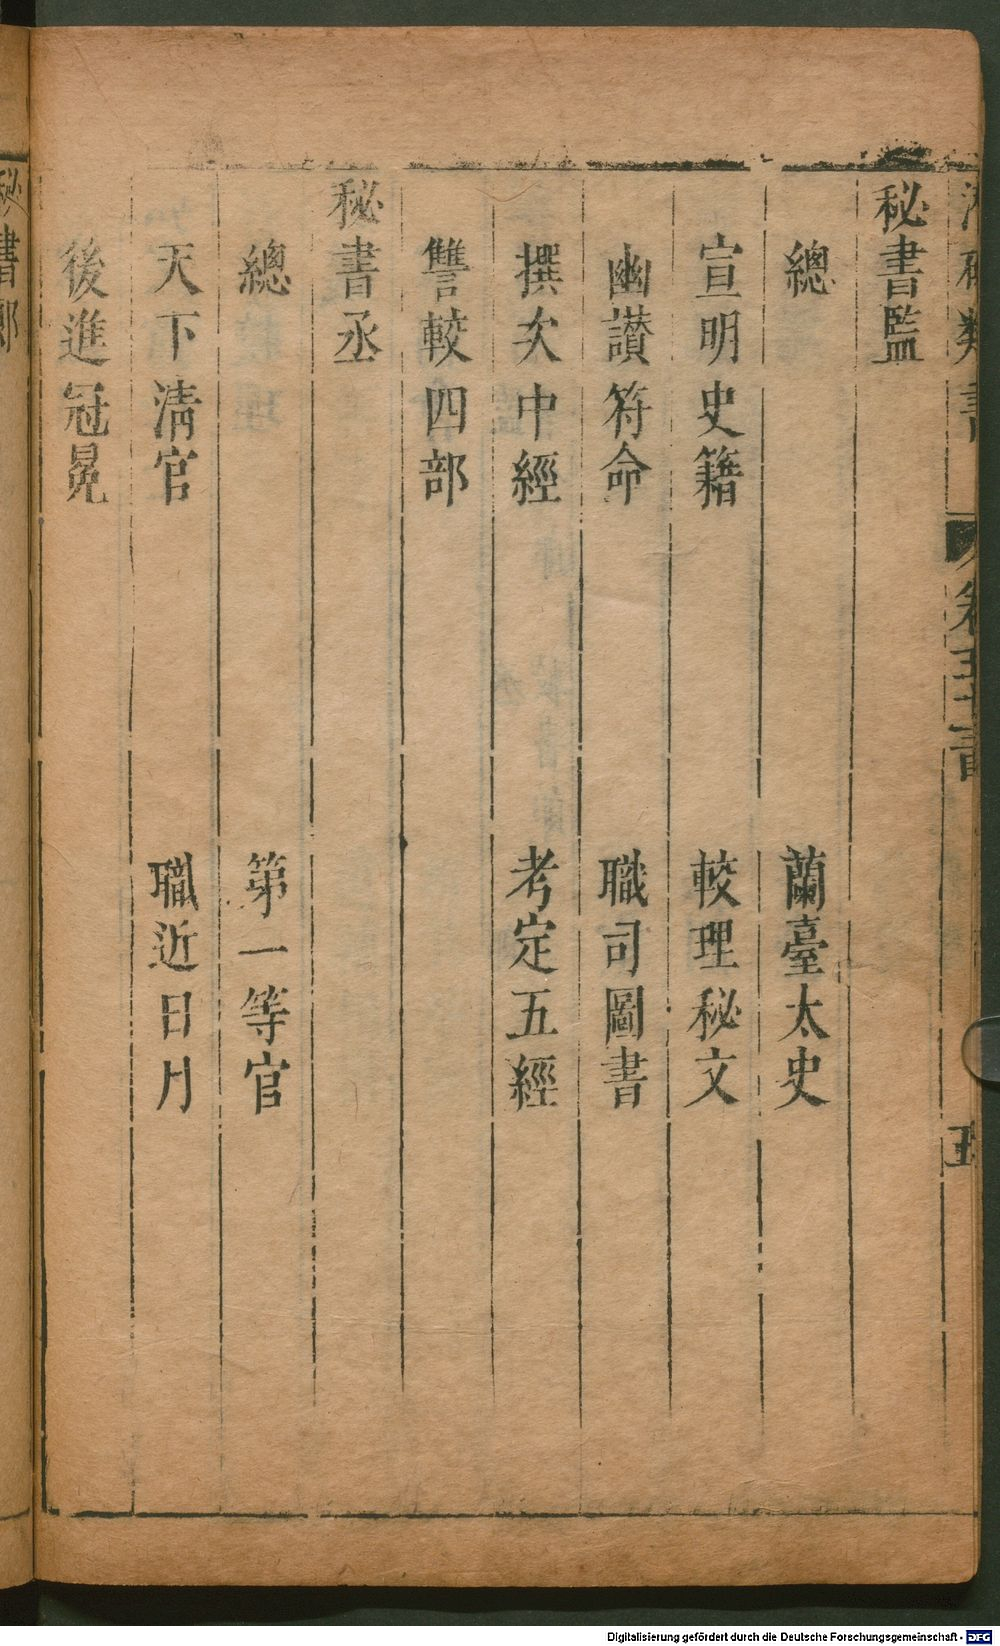 秘書監
總　蘭臺太史
宣明史籍　較理秘文
幽讃符命　職司圖書
撰次中經　考定五經
讐較四部
秘書丞
總　第一等官
天下清官　職近日月
後進冠冕
秘書郎
Digitalisierung gefördert durch die Deutsche Forschungsgemeinschaft - DFG